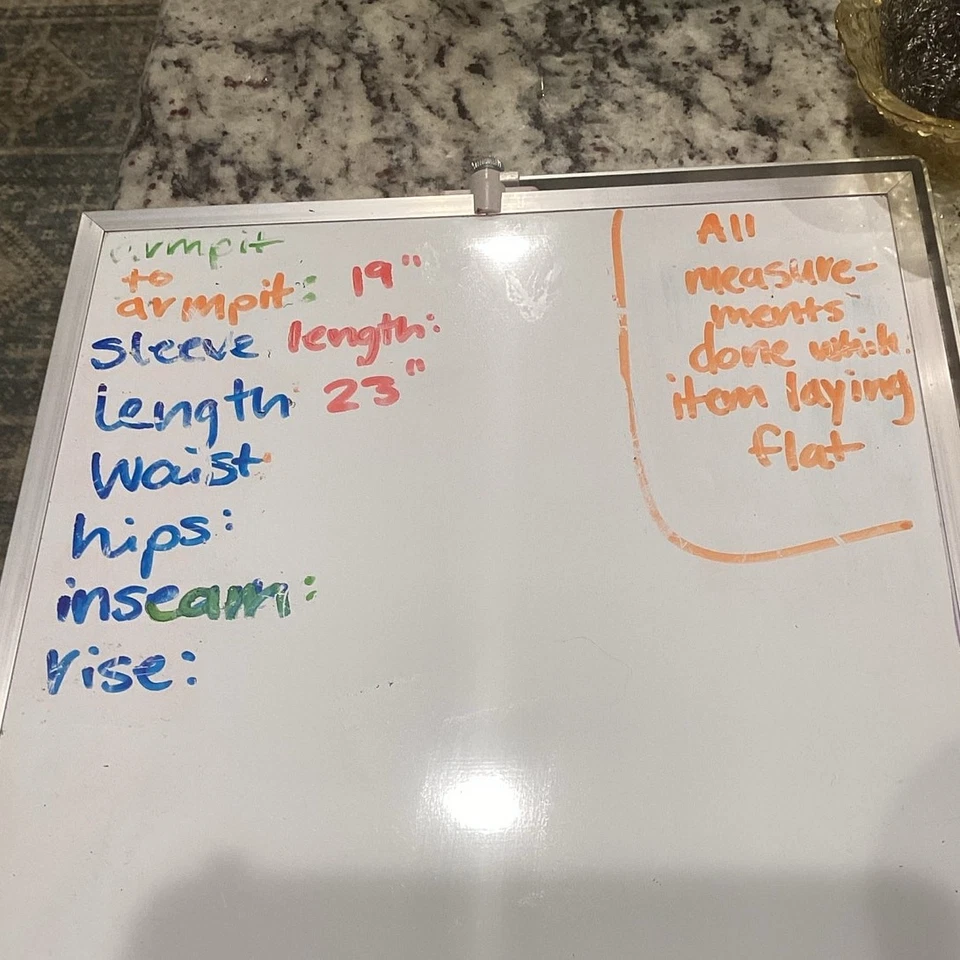 armpit
to
armpit: 19"
sleeve length:
length 23"
Waist
hips:
inseam:
rise:
All
measure-
ments
done
item laying
flat